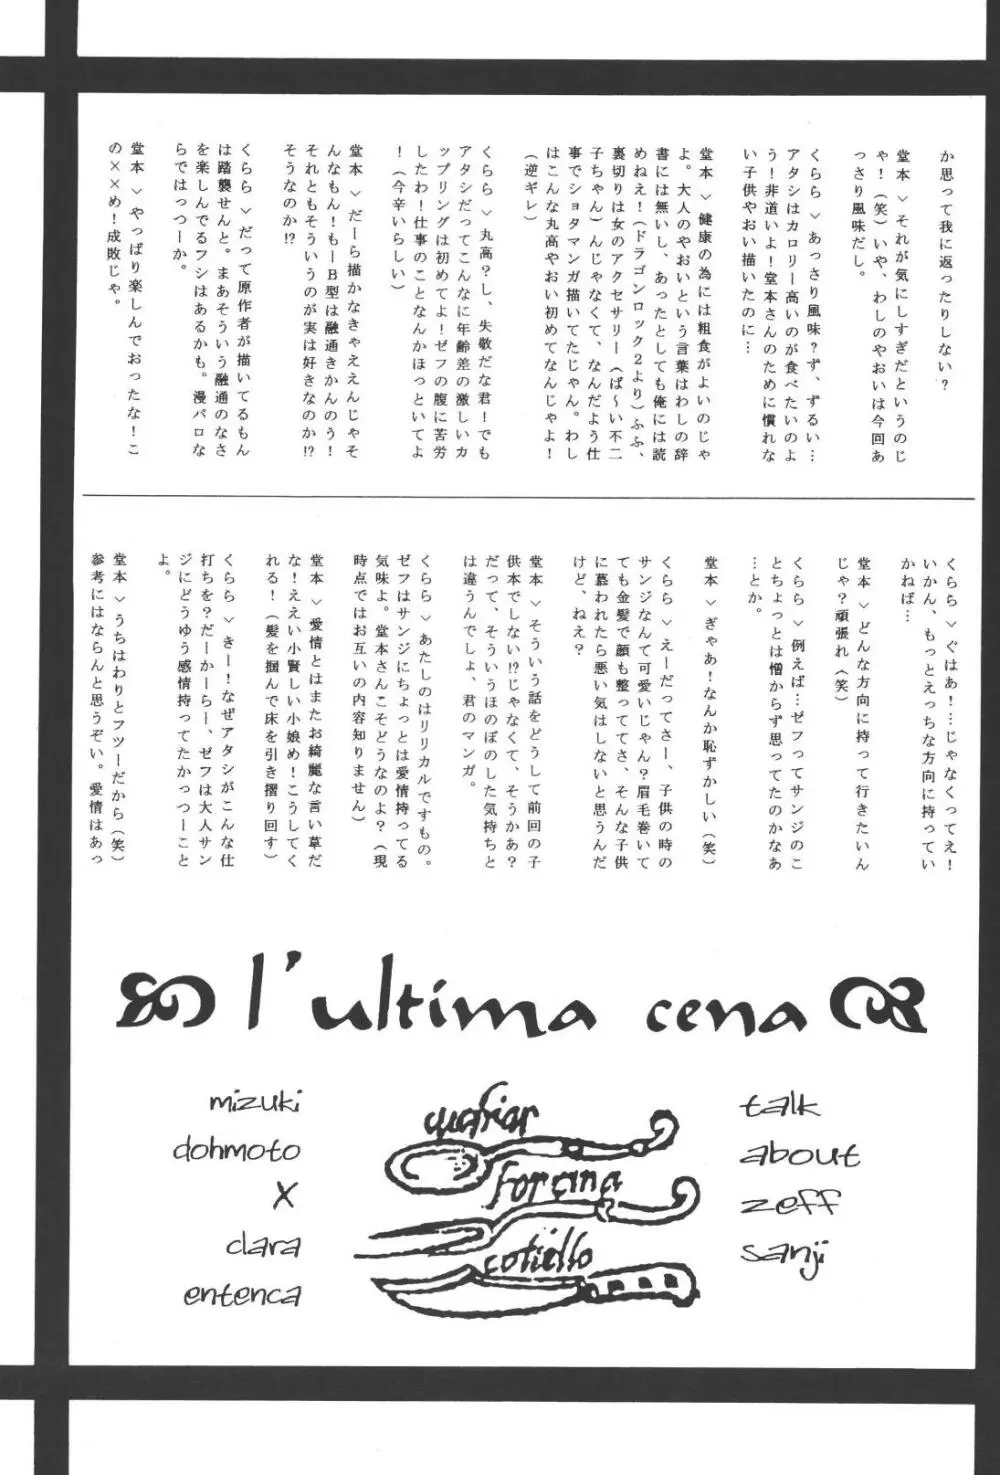 か思って我に返ったりしない？
堂本＞それが気にしすぎだというのじ
ゃ！（笑）いや、わしのやおいは今回あ
っさり風味だし。
くらら＞あっさり風味？ず、ずるい…
アタシはカロリー高いのが食べたいのよ
う！非道いよ！堂本さんのために慣れな
い子供やおい描いたのに…
堂本＞健康の為には粗食がよいのじゃ
よ。大人のやおいという言葉はわしの辞
書には無いし、あったとしても俺には読
めねえ！（ドラゴンロック２より）ふふ、
裏切りは女のアクセサリー（ば〜い不二
子ちゃん）んじゃなくて、なんだよう仕
事でショタマンガ描いてたじゃん。わし
はこんな丸高やおい初めてなんじゃよ！
（逆ギレ）
くらら＞丸高？し、失敬だな君！でも
アタシだってこんなに年齢差の激しいカ
ップリングは初めてよ！ゼフの腹に苦労
したわ！仕事のことなんかほっといてよ
！（今辛いらしい）
堂本＞だーら描かなきゃええんじゃそ
んなもん！もーＢ型は融通きかんのう！
それともそういうのが実は好きなのか!?
そうなのか!?
くらら＞だって原作者が描いてるもん
は踏襲せんと。まあそういう融通のなさ
を楽しんでるフシはあるかも。漫パロな
らではっつーか。
堂本＞やっぱり楽しんでおったな！こ
の××め！成敗じゃ。
くらら＞ぐはあ！…じゃなくってえ！
いかん、もっとえっちな方向に持ってい
かねば…
堂本＞どんな方向に持って行きたいん
じゃ？頑張れ（笑）
くらら＞例えば…ゼフってサンジのこ
とちょっとは憎からず思ってたのかなあ
…とか。
堂本＞ぎゃあ！なんか恥ずかしい（笑）
くらら＞えーだってさー、子供の時の
サンジなんて可愛いじゃん？眉毛巻いて
ても金髪で顔も整っててさ、そんな子供
に慕われたら悪い気はしないと思うんだ
けど、ねえ？
堂本＞そういう話をどうして前回の子
供本でしない!?じゃなくて、そうかあ？
だって、そういうほのぼのした気持ちと
は違うんでしょ、君のマンガ。
くらら＞あたしのはリリカルですもの。
ゼフはサンジにちょっとは愛情持ってる
気味よ。堂本さんこそどうなのよ？（現
時点ではお互いの内容知りません）
堂本＞愛情とはまたお綺麗な言い草だ
な！ええい小賢しい小娘め！こうしてく
れる！（髪を掴んで床を引き摺り回す）
くらら＞きー！なぜアタシがこんな仕
打ちを？だーかーらー、ゼフは大人サン
ジにどうゆう感情持ってたかっつーこと
よ。
堂本＞うちはわりとフツーだから（笑）
参考にはならんと思うぞい。愛情はあっ
l'ultima cena
mizuki
dohmoto
X
clara
entenca
quafiar
forcina
cotiello
talk
about
zeff
sanji